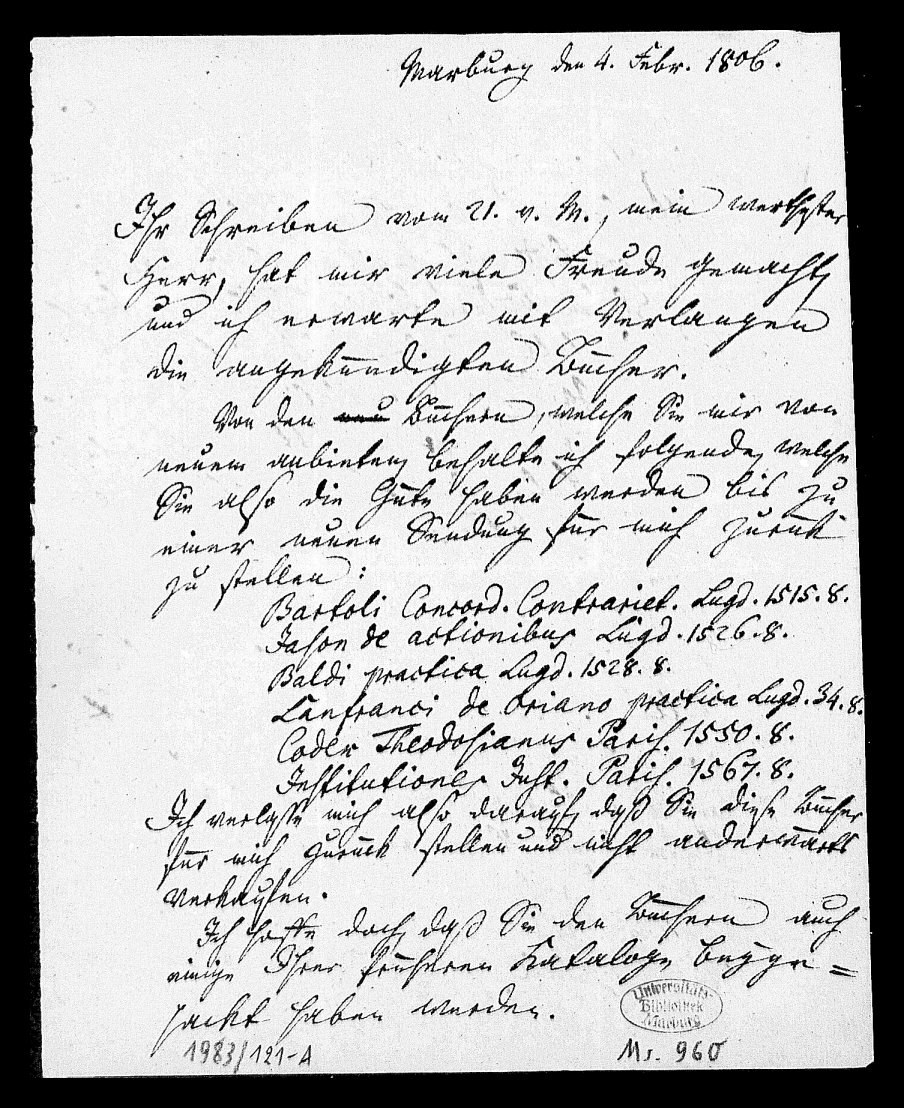 Marburg den 4. Febr. 1806.
Ihr Schreiben vom 21. v. M., mein werthester
Herr, hat mir viele Freude gemacht,
und ich erwarte mit Verlangen
die angekündigten Bücher.
Von den neu Büchern, welche Sie mir von
neuem anbieten, behalte ich folgende, welche
Sie also die Güte haben werden bis zu
einer neuen Sendung für mich zurück
zu stellen:
Bartoli Concord. Contrariet. Lugd. 1515. 8.
Jason de actionibus Lugd. 1526. 8.
Baldi practica Lugd. 1528. 8.
Lanfranci de Oriano practica Lugd. 34. 8.
Codex Theodosianus Paris. 1550. 8.
Institutiones Just. Paris. 1567. 8.
Ich verlasse mich also darauf, daß Sie diese Bücher
für mich zurück stellen und nicht anderwärts
verkaufen.
Ich hoffe doch, daß Sie den Büchern auch
einige Ihrer früheren Kataloge beyge=
packt haben werden.
Universitäts-
Bibliothek
Marburg
1983/121-A
Ms. 960